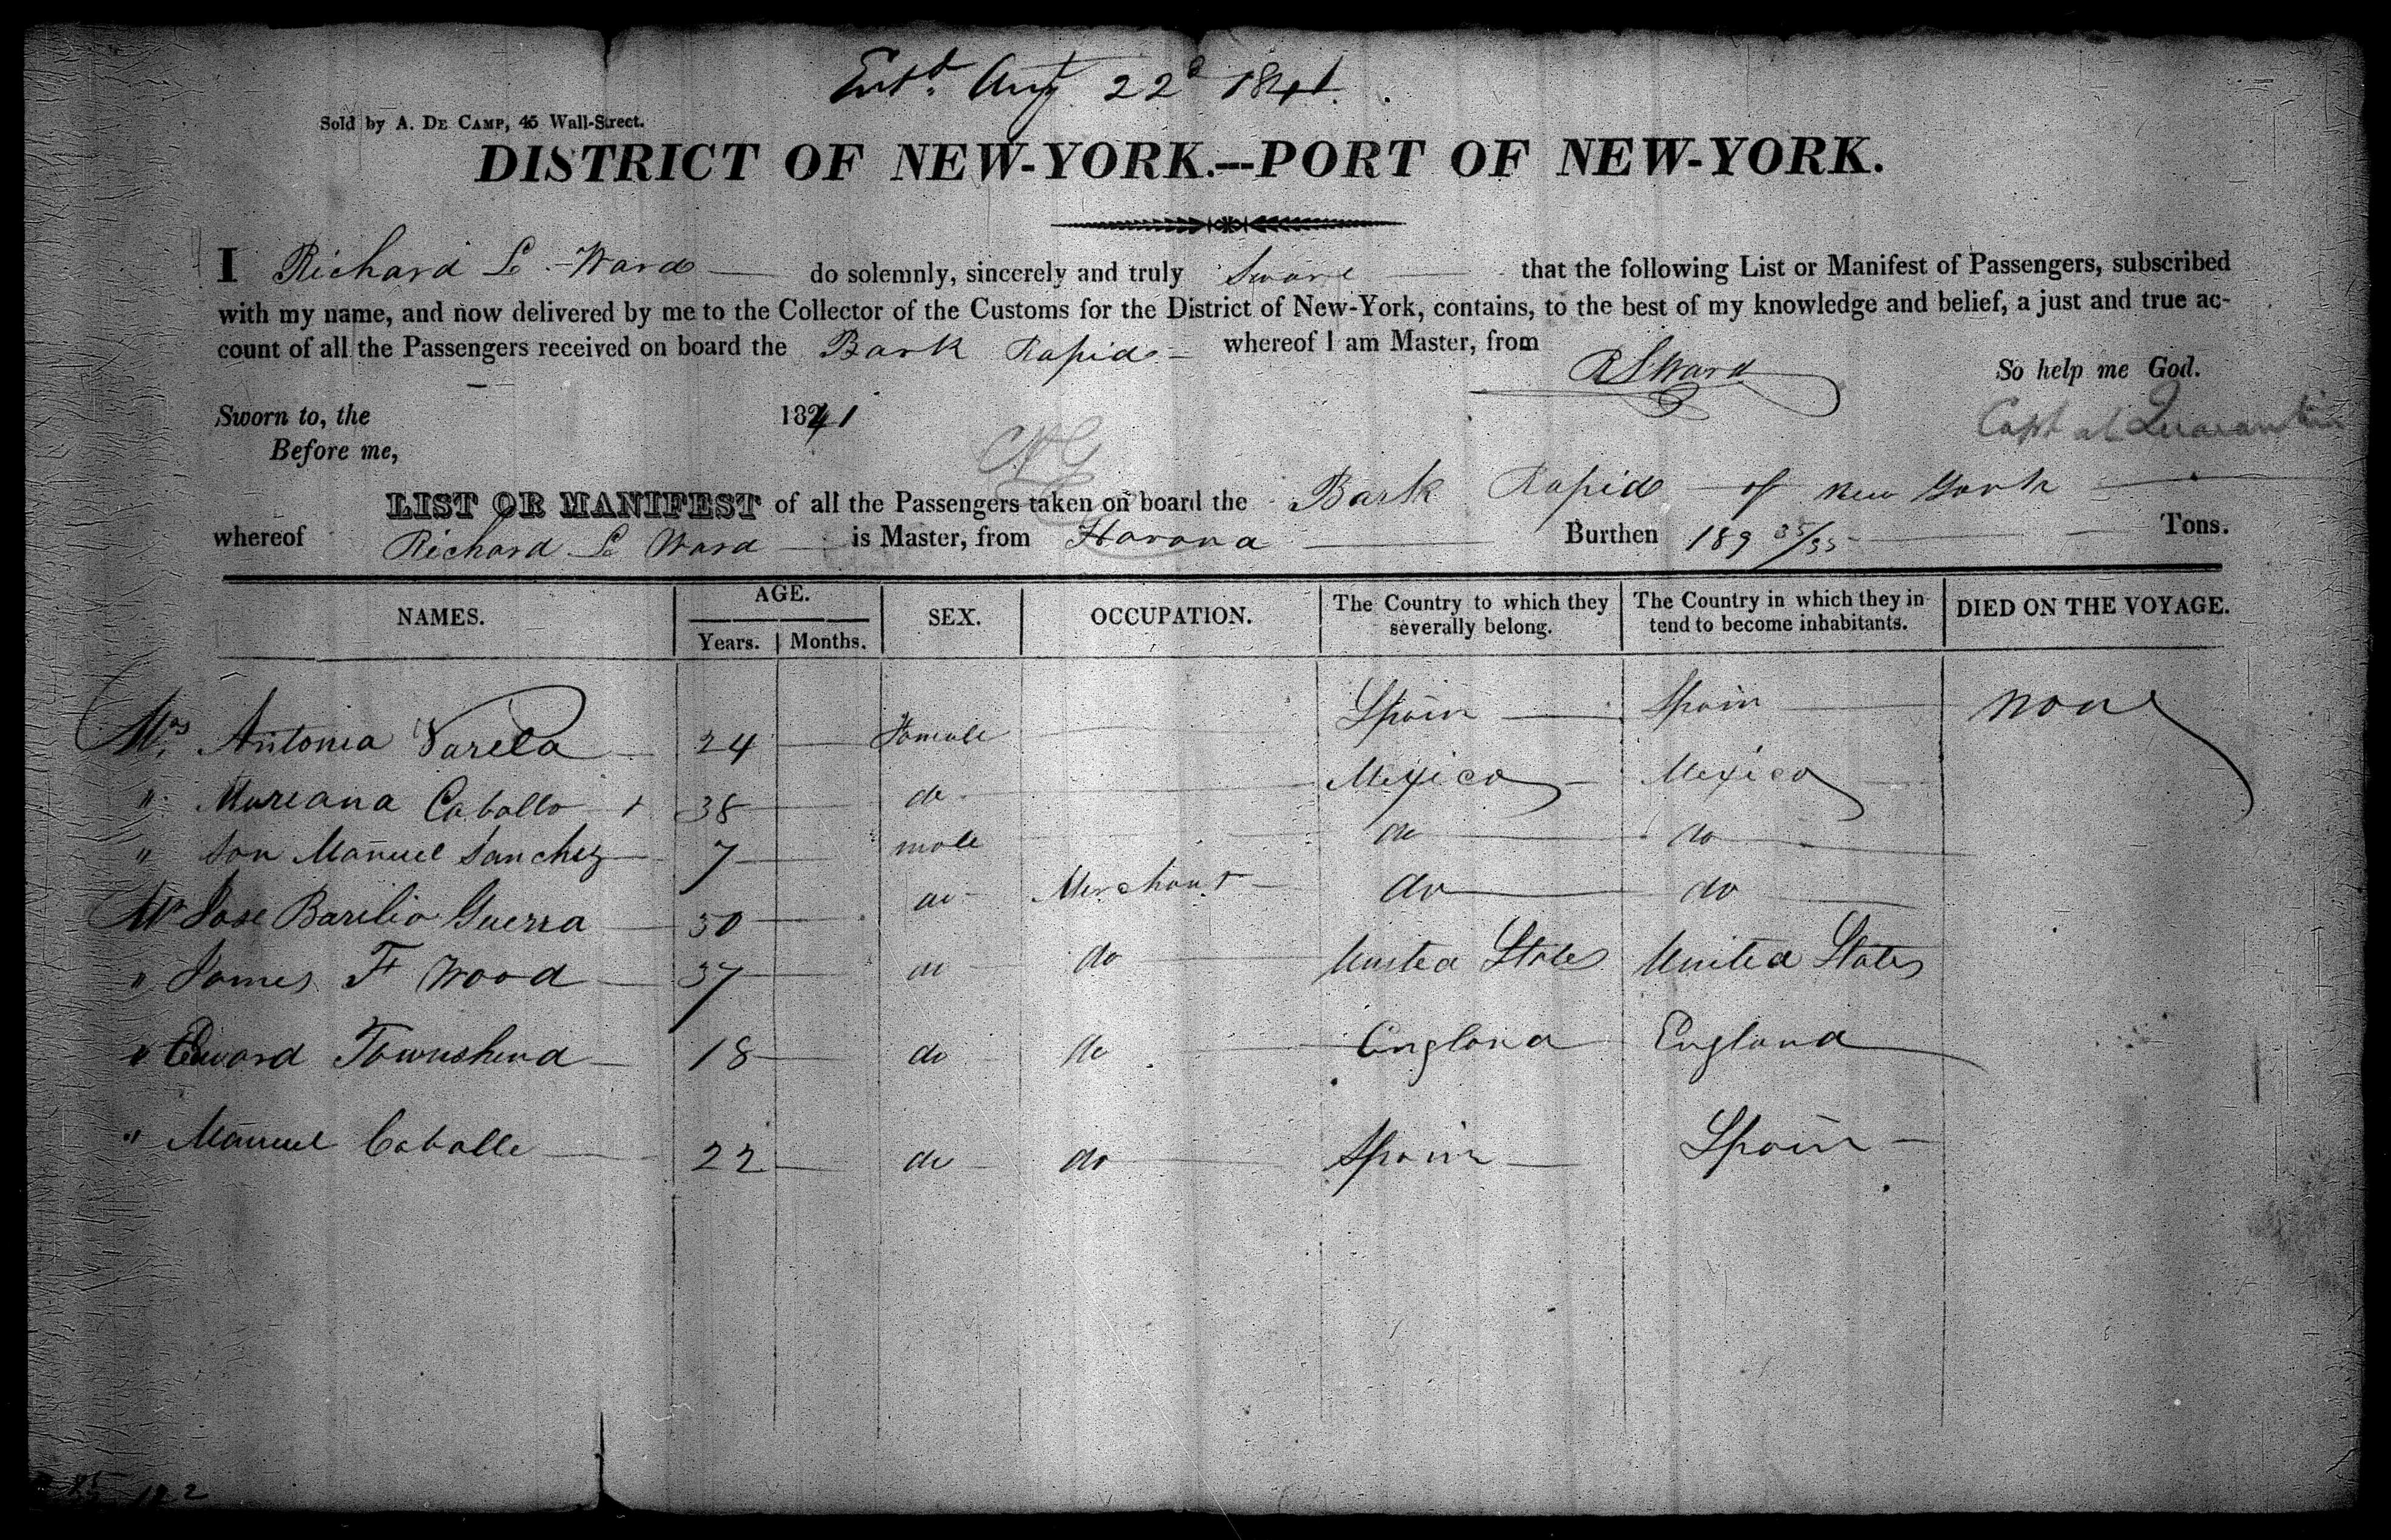 Entd. Augt 22d 1841.
Sold by A. De Camp, 45 Wall-Street.
DISTRICT OF NEW-YORK.--PORT OF NEW-YORK.
I Richard S. Ward do solemnly, sincerely and truly Swore that the following List or Manifest of Passengers, subscribed
with my name, and now delivered by me to the Collector of the Customs for the District of New-York, contains, to the best of my knowledge and belief, a just and true ac-
count of all the Passengers received on board the Bark Rapid whereof I am Master, from
R S Ward So help me God.
Sworn to, the 1841 Capt at Quarantine
Before me,
LIST OR MANIFEST of all the Passengers taken on board the Bark Rapid of New York
whereof Richard S Ward is Master, from Havana Burthen 189 Tons.
NAMES. AGE. Years. Months. SEX. OCCUPATION. The Country to which they severally belong. The Country in which they in-tend to become inhabitants. DIED ON THE VOYAGE.
Mrs Antonia Varela 24 Female Spain Spain None
" Mareana Caballo 38 do Mexico Mexico
" Son Manuel Sanchez 7 male do do
Mr Jose Barilio Guerra 30 do Merchant do do
" James F Wood 37 do do United States United States
" Edward Townshend 18 do do England England
" Manuel Caballe 22 do do Spain Spain